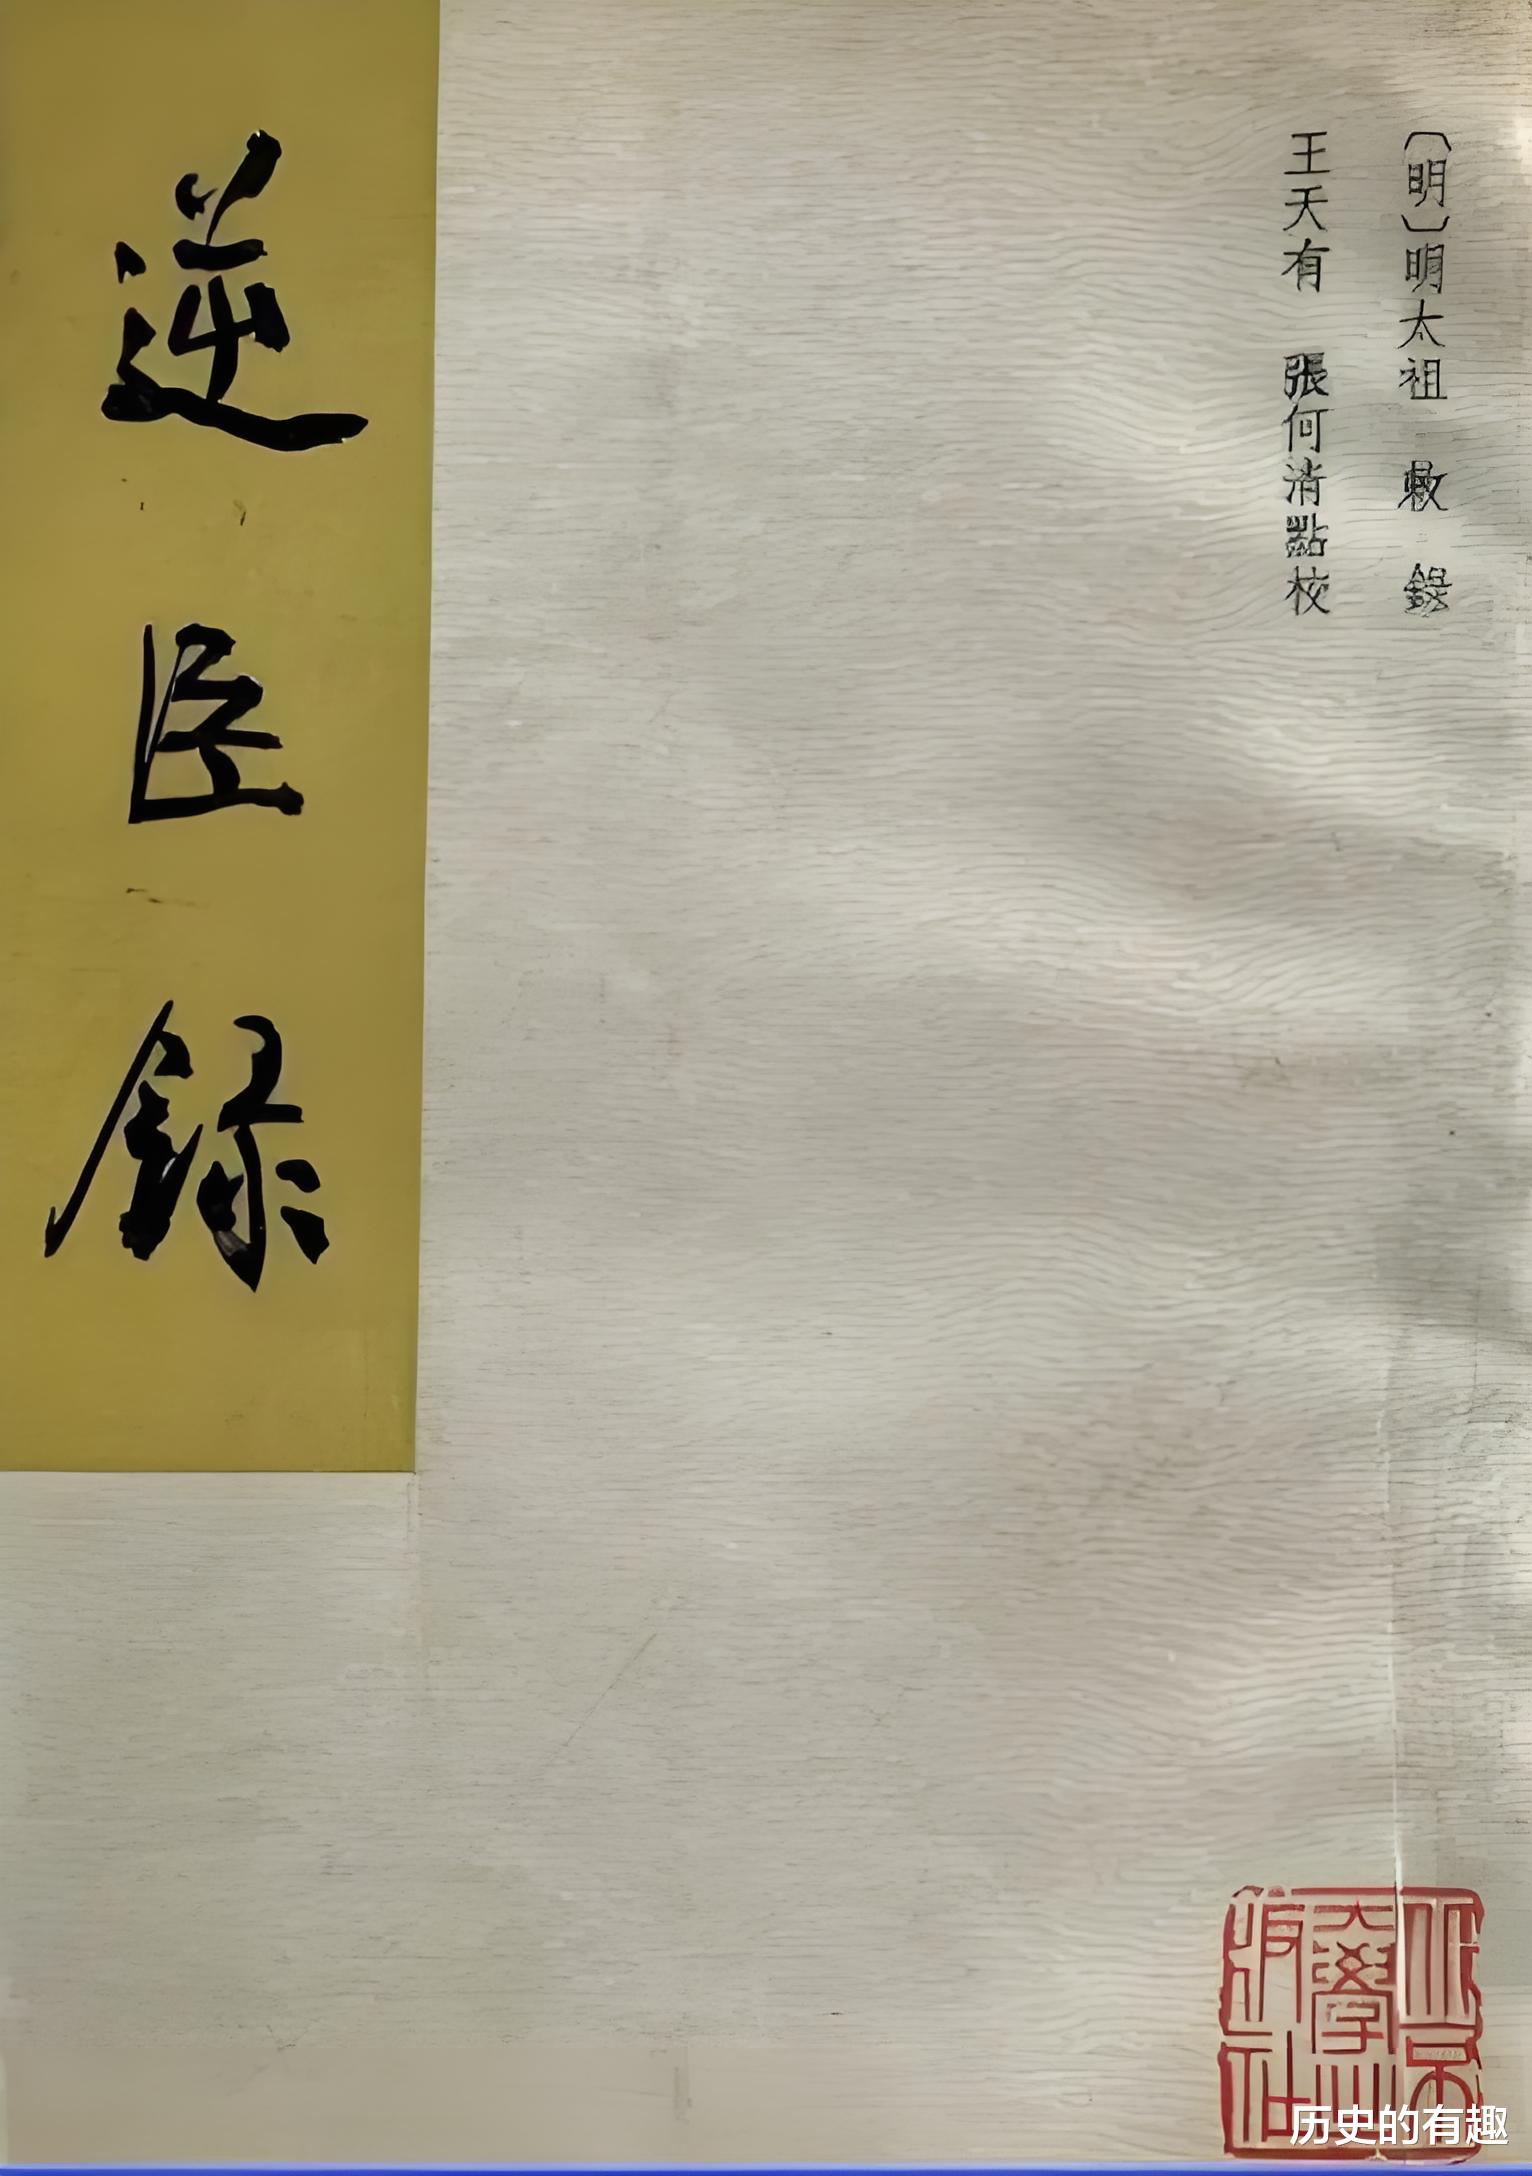 〔明〕明太祖 敕 錄
王天有 張何清點校
逆臣録
北京
大學出
版社
历史的有趣